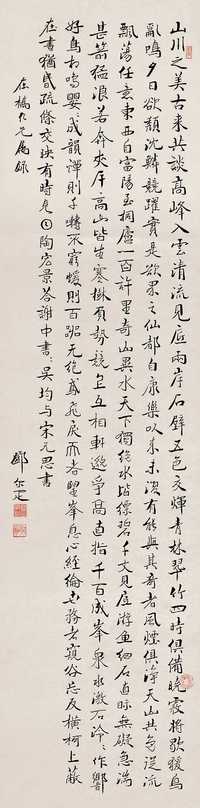 山川之美古來共談高峰入雲清流見底兩岸石壁五色交輝青林翠竹四時俱備曉霧將歇猿鳥
亂鳴夕日欲頹沈鱗競躍實是欲界之仙都自康樂以來未復有能與其奇者風煙俱淨天山共色從流
飄蕩任意東西自富陽至桐廬一百許里奇山異水天下獨絕水皆縹碧千丈見底游魚細石直視無礙急湍
甚箭猛浪若奔夾岸高山皆生寒樹負勢競上互相軒邈爭高直指千百成峯泉水激石泠泠作響
好鳥相鳴嚶嚶成韻蟬則千轉不窮猨則百叫無絕鳶飛戾天者望峯息心經綸世務者窺谷忘反橫柯上蔽
在晝猶昏疏條交映有時見日陶宏景答謝中書書吳均與宋元思書
在橋九兄屬錄
鄧尒疋